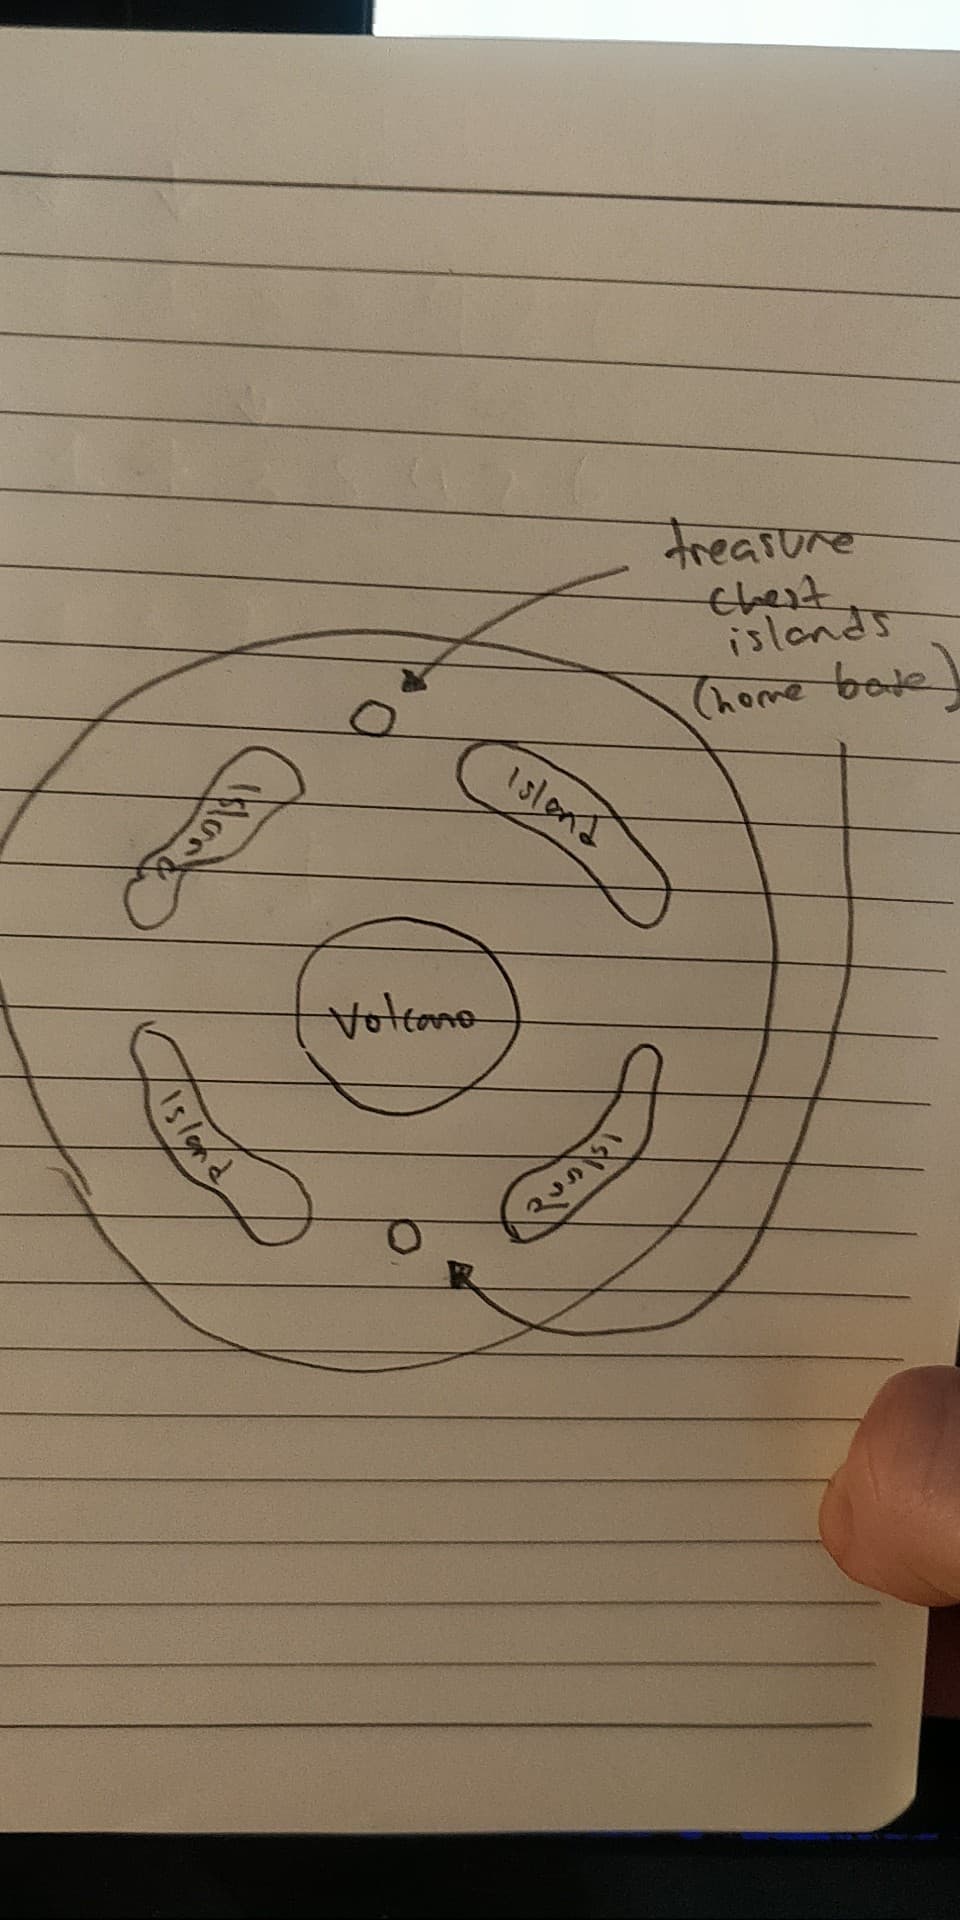 treasure
chest
islands
(home base)
Island
Island
Volcano
Island
Island